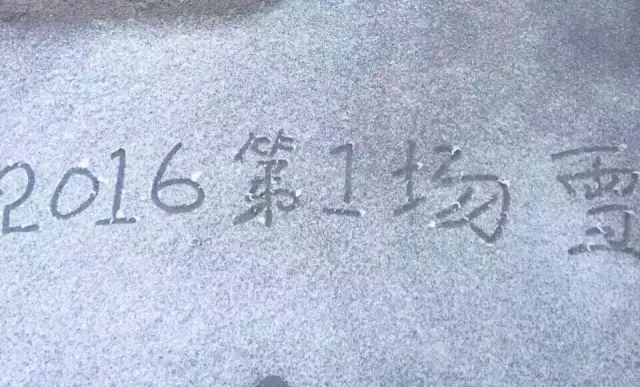 2016第1场雪